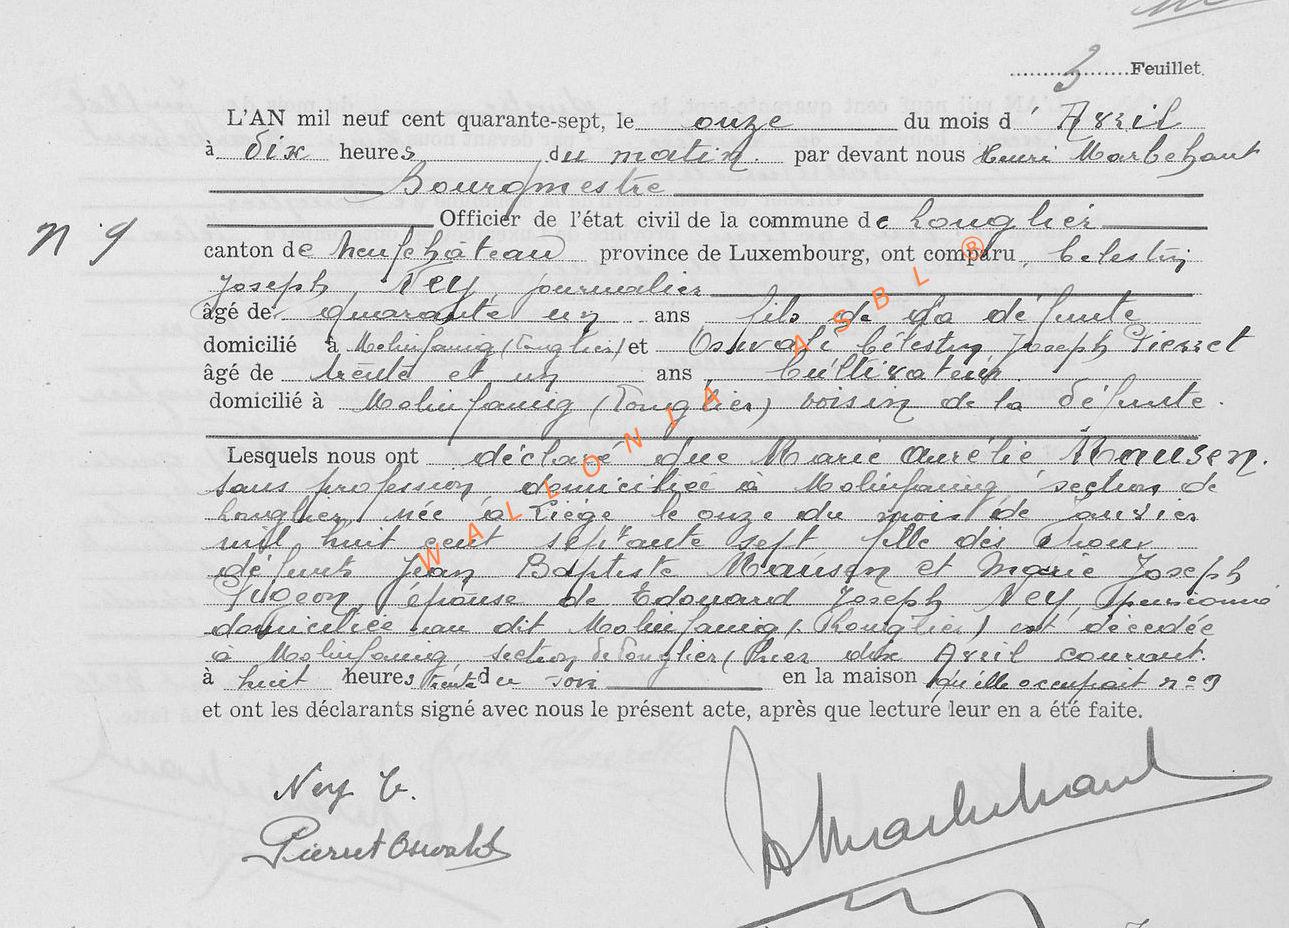 3 Feuillet.
L'AN mil neuf cent quarante-sept, le onze du mois d' Avril
à dix heures du matin. par devant nous Henri Marbehant
Bourgmestre
Officier de l'état civil de la commune de Longlier
n 9
canton de Neufchâteau province de Luxembourg, ont comparu Célestin
Joseph Ney journalier
âgé de quarante un ans fils de la défunte
domicilié à Molinfaing (Longlier) et Oswald Célestin Joseph Pierret
âgé de trente et un ans Cultivateur
domicilié à Molinfaing (Longlier) voisin de la défunte.
Lesquels nous ont déclaré que Marie Aurélie Mausen.
sans profession domiciliée à Molinfaing section de
Longlier, née à Liège le onze du mois de janvier
mil huit cent septante sept fille des époux
défunts Jean Baptiste Mausen et Marie Joseph
Pigeon, épouse de Edouard Joseph Ney, pensionné
domiciliée au dit Molinfaing (Longlier) est décédée
à Molinfaing, section de Longlier, hier dix Avril courant.
à huit heures trente du soir en la maison qu'elle occupait n° 9
et ont les déclarants signé avec nous le présent acte, après que lecture leur en a été faite.
Ney C.
Pierret Oswald
H Marbehant
WALLONIA ASBL ®